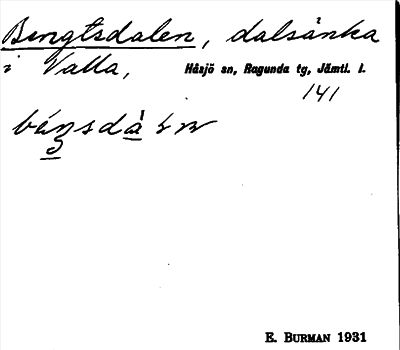 Bengtsdalen, dalsänka
i Valla, Håsjö sn, Ragunda tg, Jämtl. l.
141
E. BURMAN 1931